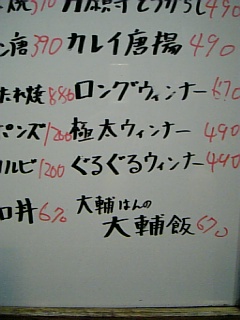 焼 570 万願寺とうがらし 490
ン唐 390 カレイ唐揚 490
たれ焼 880 ロングウィンナー 670
ポンズ 1200 極太ウィンナー 490
カルビ 1200 ぐるぐるウィンナー 440
ロ丼 670 大輔はんの
大輔飯 670